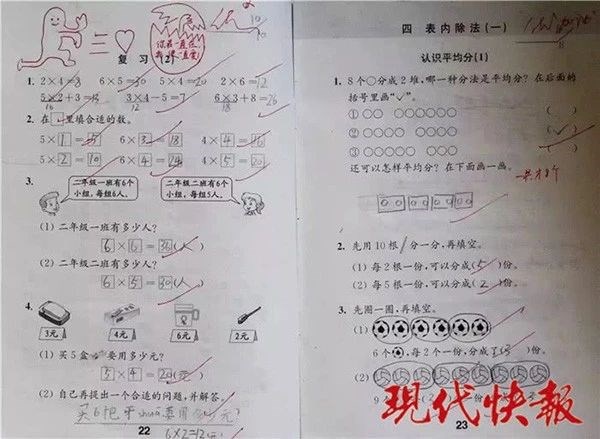 复习(2)
1. 2×4=8 6×5=30 5×4=20 2×6=12
5×2+3=13 3×4-5=7 6×3+8=26
10 12 18
2. 在□里填合适的数。
5×1=5 6×3=18 4×4=16
5×2=10 6×4=24 4×5=20
3.
二年级一班有6个小组,每组6人。
二年级二班有6个小组,每组5人。
(1) 二年级一班有多少人?
6×6=36(人)
(2) 二年级二班有多少人?
6×5=30(人)
4.
3元 4元 6元 2元
(1) 买5盒 要用多少元?
5×4=20(元)
(2) 自己再提出一个合适的问题,并解答。
买6把牙shuā要用多少元?
6×2=12
22
四 表内除法(一)
认识平均分(1)
1. 8个○分成2堆,哪一种分法是平均分?在后面的
括号里画“✓”。
① ( )
② (✓)
③ ( )
还可以怎样平均分?在下面画一画。
2. 先用10根 分一分,再填空。
(1) 每2根一份,可以分成(5)份。
(2) 每5根一份,可以分成(2)份。
3. 先圈一圈,再填空。
(1)
6个 ,每2个一份,分成了(3)份。
(2)
9
现代快报
23